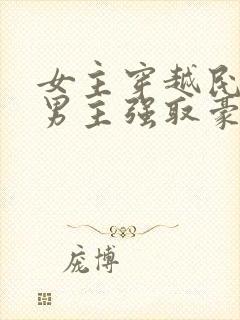 女主穿越民
男主强取豪
庞博